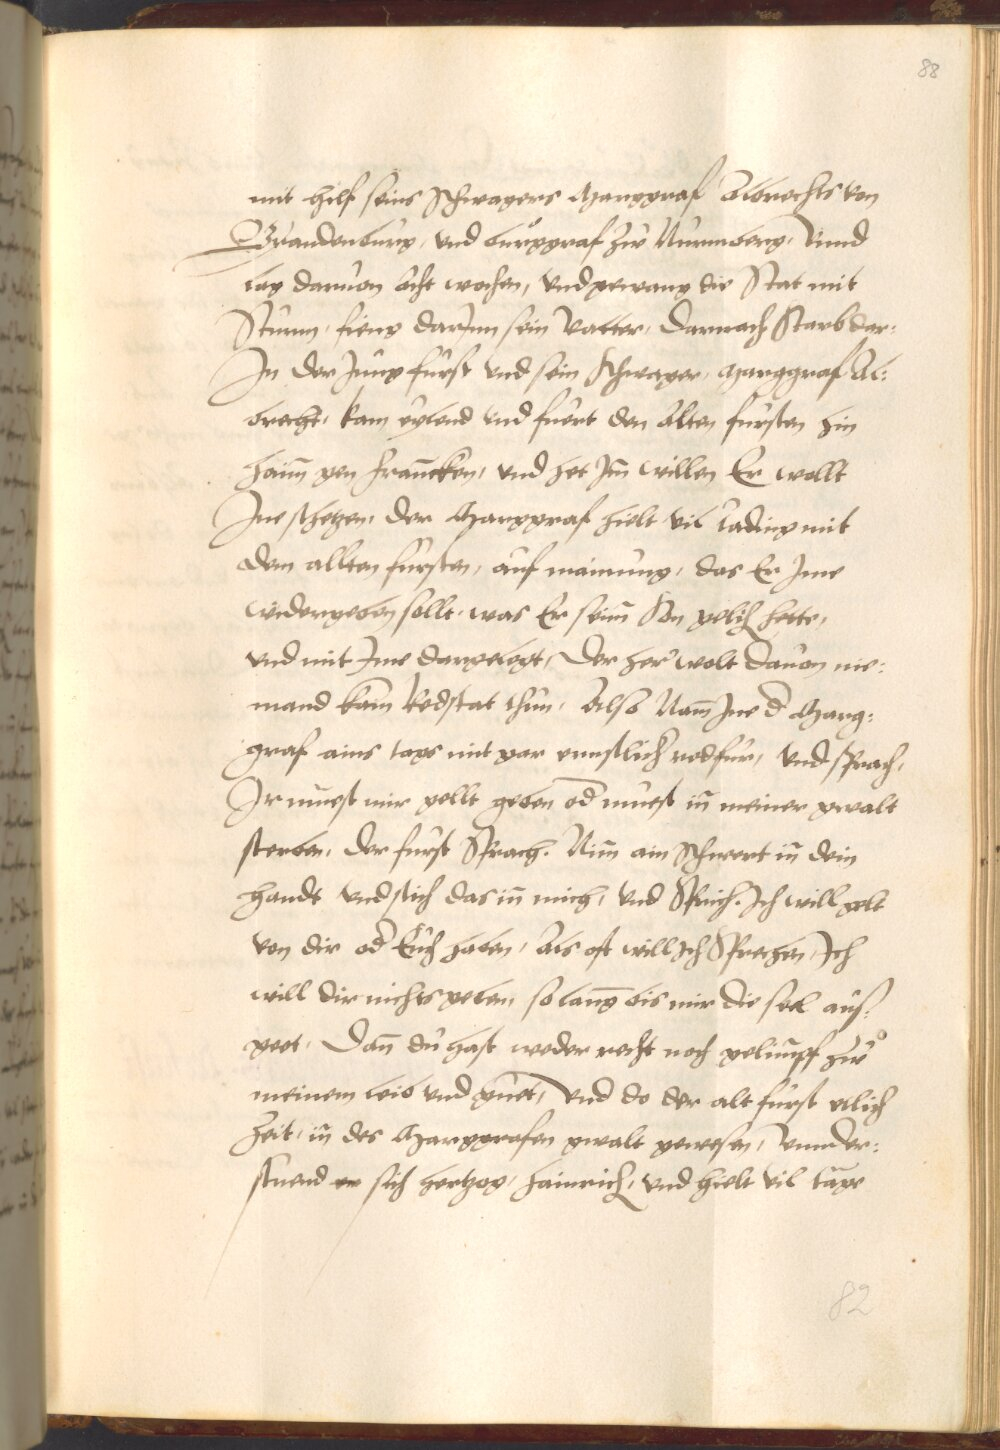 88
mit hilf seins Schwagers Marggraf Albrechts von
Brandenburg, vnd burggraf zů Nurmberg, Vnnd
lag daruon Acht wochen, vnd gewang die Stat mit
Sturm, fieng darInn sein Vatter, Darnach Starb dar:
In der Jung furst vnd sein Schwager, Marggraf Al:
brecht, kam eylend vnd fuert den Alten fursten hin
haim gen franncken, vnd het Im willen Er wollt
Ine schetzen, der Marggraf hielt vil tading mit
dem allten fursten, auf mainung, das Er Ime
widergeben sollt, was Er seim Son gelich hette,
vnd mit Ime dargelegt, Der her wolt dauon nie:
mand kain Redstat thun, Also Nam Ine d Marg:
graf ains tags mit gar ernstlich red fur, vnd sprach,
Ir muest mir gellt geben od muest in meiner gwalt
sterben, der furst Sprach. Nim ain Schwert in dein
handt vnd stich das in mich, vnd Sprich. Ich will gelt
von dir od Euch haben, Als oft will Ich Sprechen, Ich
will dir nichts geben, so lanng bis mir die seel aus:
geet, Dan du hast weder recht noch gelimpf zů
meinem leib vnd guet, Vnd do der alt furst etlich
Zeit, in des Marggrafen gwalt gewesen, Vnnder:
stuend er sich hertzog, Hainrich, vnd hielt vil tage
82